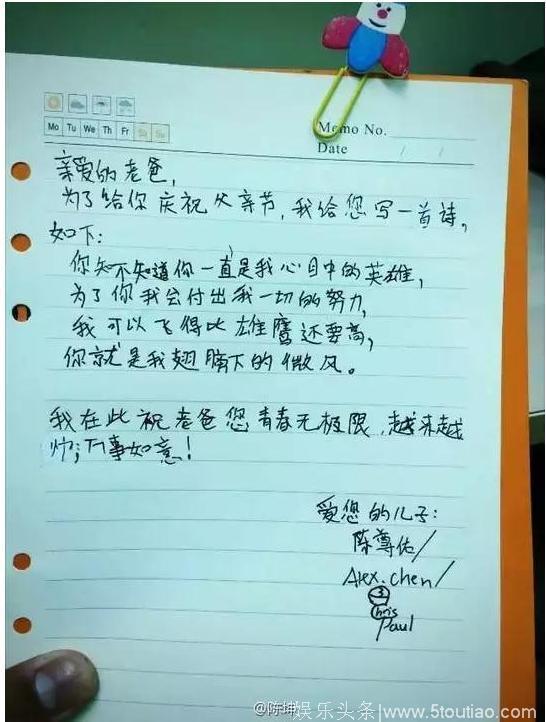 Memo No.
Mo Tu We Th Fr Sa Su
Date / /
亲爱的老爸，
为了给你庆祝父亲节，我给您写一首诗，
如下：
你知不知道你一直是我心目中的英雄，
为了你我会付出我一切的努力，
我可以飞得比雄鹰还要高，
你就是我翅膀下的微风。
我在此祝老爸您青春无极限，越来越
帅；万事如意！
爱您的儿子：
陈尊佑/
Alex.chen/
3
Chris
Paul
@陈坤
娱乐头条/www.5toutiao.com